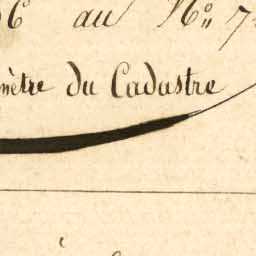 au N° 7
mètre du Cadastre